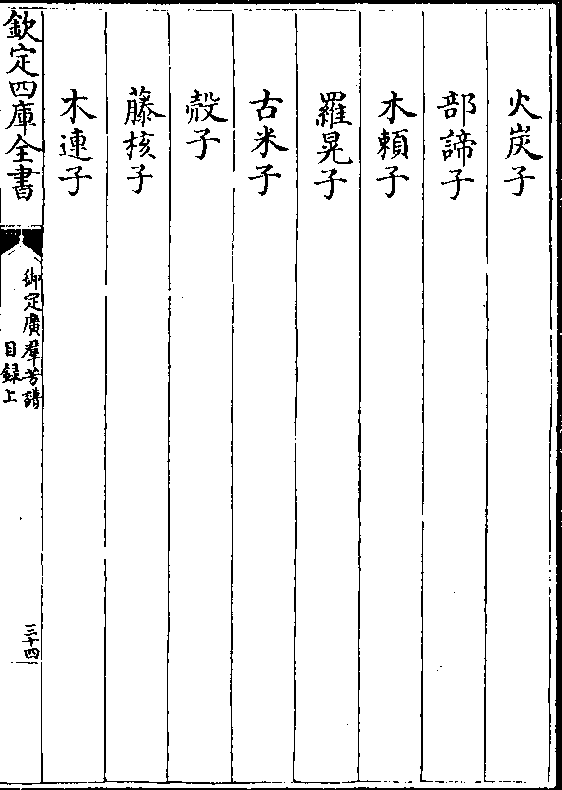 火炭子
部諦子
木頼子
羅晃子
古米子
殻子
藤核子
木連子
欽定四庫全書
御定廣羣芳譜
目録上
三十四